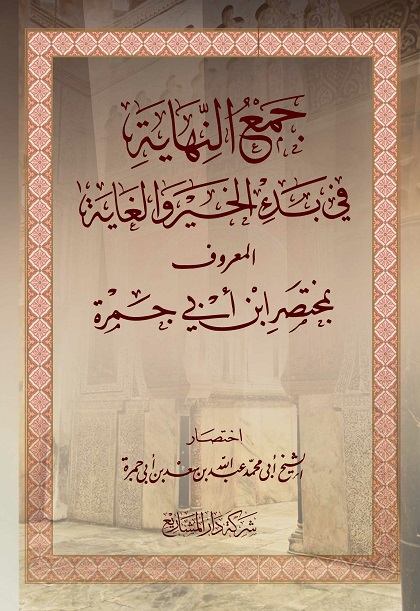 جَمْعُ النِّهَايَةِ
في بَدْءِ الخَيْرِ وَالغَايَة
المعروف
بمُختصَرِ ابْنِ أَبي جَمْرَة
اختصار
الشيخ أبي محمّد عبد اللّٰه بن سعد بن أبي جمرة
شركة دار المشاريع